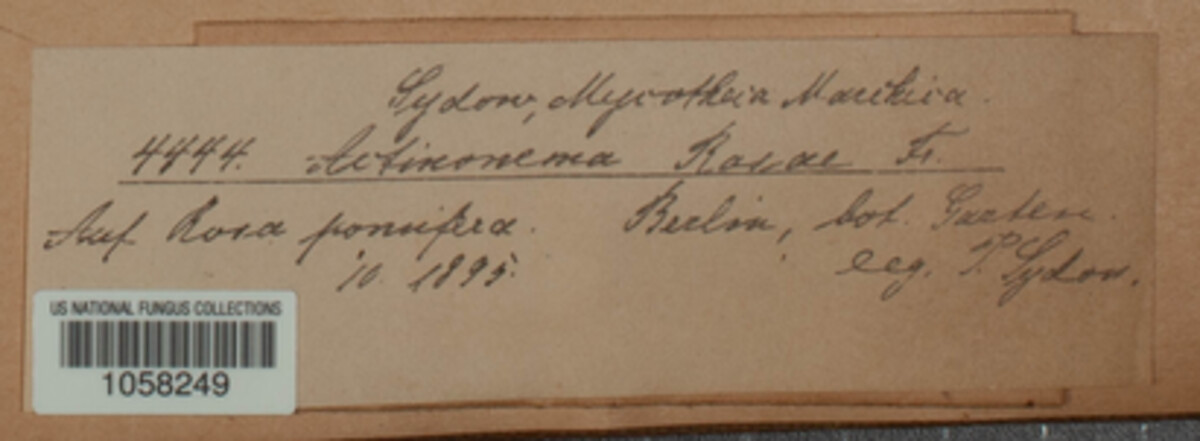 Sydow, Mycotheca Marchica.
4444. Actinonema Rosae Fr.
Auf Rosa pomifera. Berlin, bot. Garten.
10. 1895. leg. P. Sydow.
US NATIONAL FUNGUS COLLECTIONS
1058249